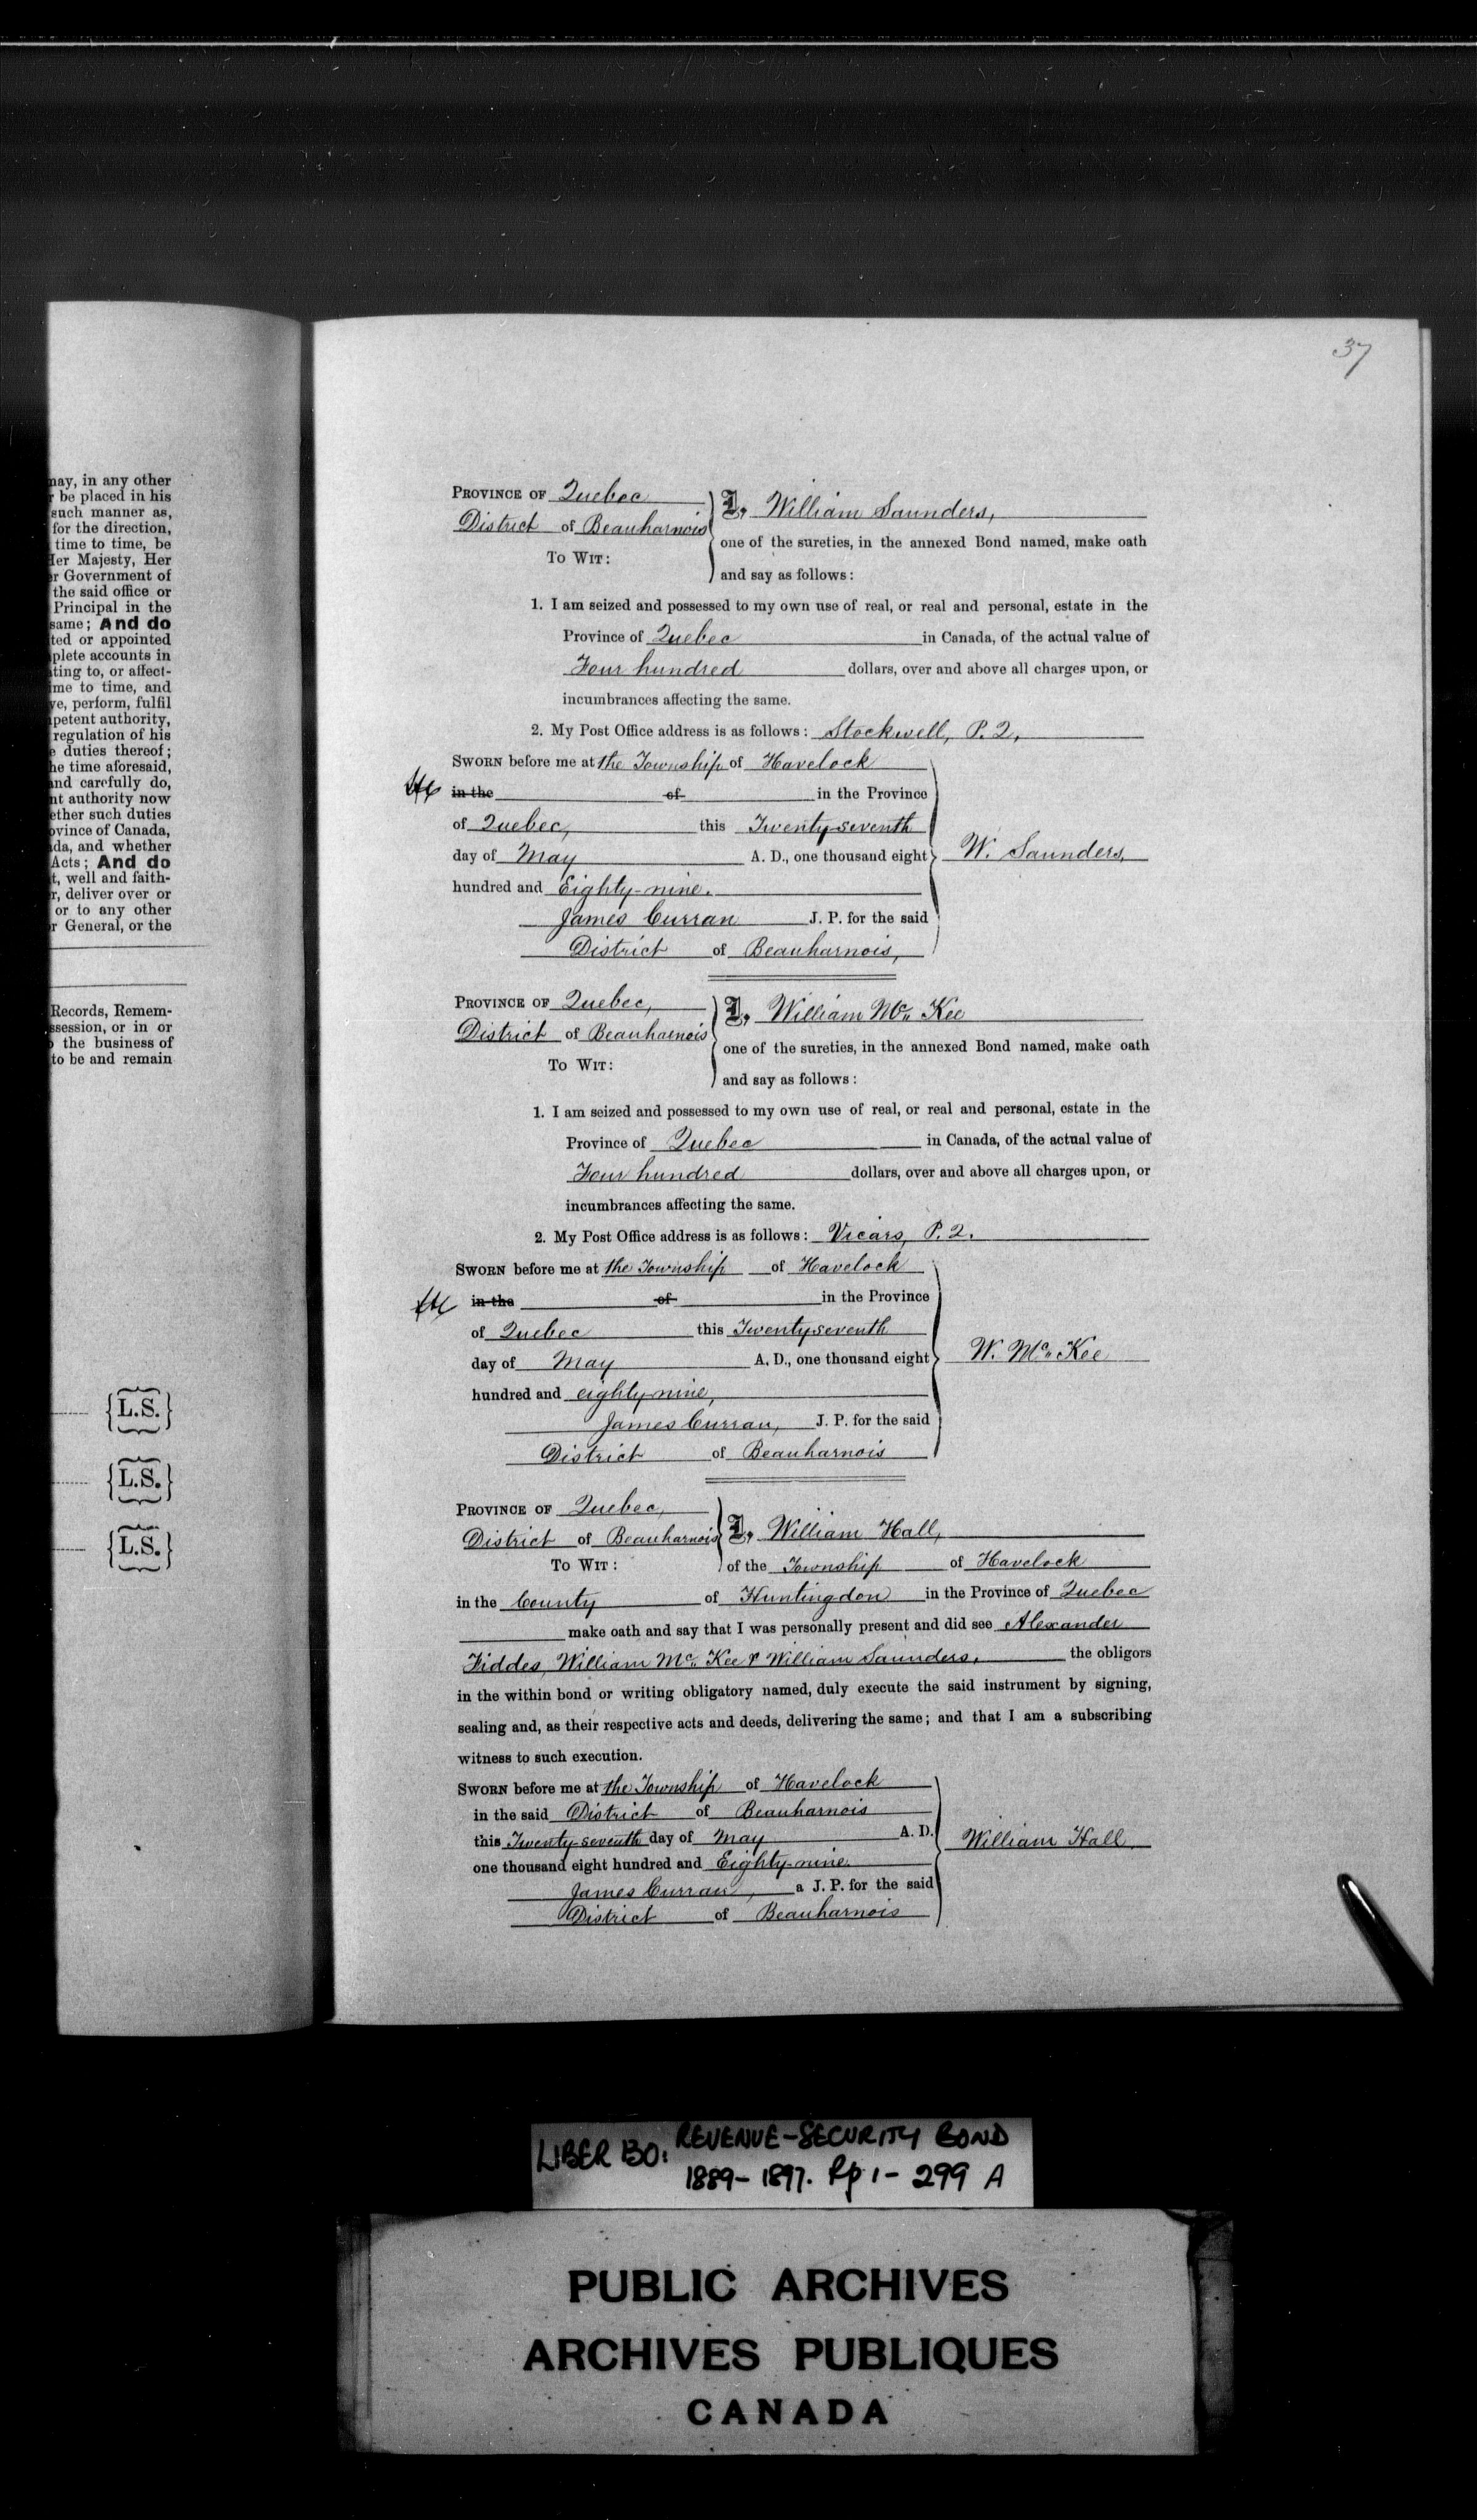 37
may, in any other
r be placed in his
such manner as,
for the direction,
time to time, be
Her Majesty, Her
er Government of
the said office or
Principal in the
same; And do
ted or appointed
plete accounts in
ting to, or affect-
me to time, and
ve, perform, fulfil
petent authority,
regulation of his
e duties thereof;
he time aforesaid,
and carefully do,
nt authority now
ether such duties
ovince of Canada,
da, and whether
Acts; And do
t, well and faith-
r, deliver over or
or to any other
r General, or the
Records, Remem-
ssession, or in or
the business of
to be and remain
{L.S.}
{L.S.}
{L.S.}
PROVINCE OF Quebec
District of Beauharnois
TO WIT:
I, William Saunders,
one of the sureties, in the annexed Bond named, make oath
and say as follows:
1. I am seized and possessed to my own use of real, or real and personal, estate in the
Province of Quebec in Canada, of the actual value of
Four hundred dollars, over and above all charges upon, or
incumbrances affecting the same.
2. My Post Office address is as follows: Stockwell, P.Q,
SWORN before me at the Township of Havelock
in the of in the Province
of Quebec, this Twenty-seventh
day of May A. D., one thousand eight
hundred and Eighty-nine.
James Curran J. P. for the said
District of Beauharnois,
W. Saunders,
PROVINCE OF Quebec,
District of Beauharnois
TO WIT:
I, William Mc Kee
one of the sureties, in the annexed Bond named, make oath
and say as follows:
1. I am seized and possessed to my own use of real, or real and personal, estate in the
Province of Quebec in Canada, of the actual value of
Four hundred dollars, over and above all charges upon, or
incumbrances affecting the same.
2. My Post Office address is as follows: Vicars, P.Q.
SWORN before me at the Township of Havelock
in the of in the Province
of Quebec this Twenty seventh
day of May A. D., one thousand eight
hundred and eighty-nine,
James Curran, J. P. for the said
District of Beauharnois
W. Mc Kee
PROVINCE OF Quebec,
District of Beauharnois
TO WIT:
I, William Hall,
of the Township of Havelock
in the County of Huntingdon in the Province of Quebec
make oath and say that I was personally present and did see Alexander
Fiddes, William Mc Kee & William Saunders, the obligors
in the within bond or writing obligatory named, duly execute the said instrument by signing,
sealing and, as their respective acts and deeds, delivering the same; and that I am a subscribing
witness to such execution.
SWORN before me at the Township of Havelock
in the said District of Beauharnois
this Twenty-seventh day of May A. D.
one thousand eight hundred and Eighty-nine.
James Curran, a J. P. for the said
District of Beauharnois
William Hall,
LIBER 130: REVENUE-SECURITY BOND
1889-1897. Pp 1-299 A
PUBLIC ARCHIVES
ARCHIVES PUBLIQUES
CANADA